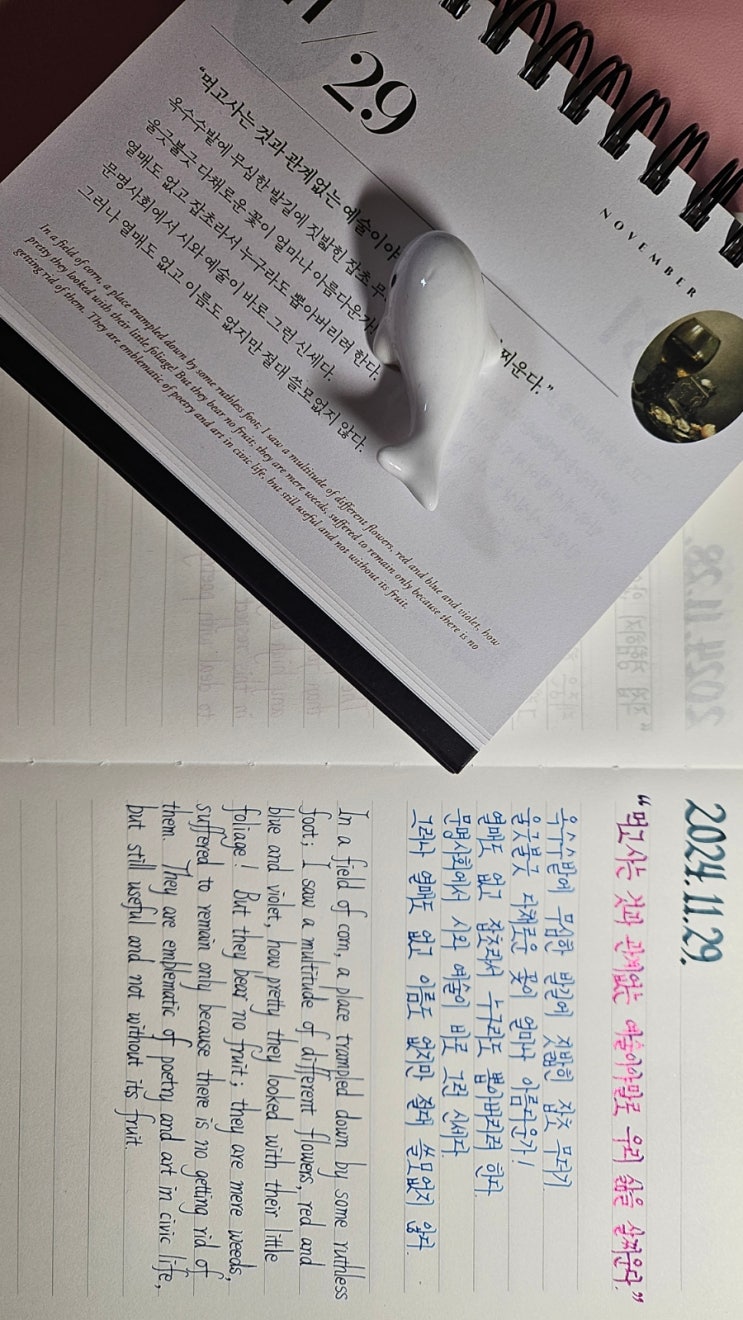 /29
NOVEMBER
“먹고사는 것과 관계없는 예술이야 찌운다.”
옥수수밭에 무심한 발길에 짓밟힌 잡초 무
울긋불긋 다채로운 꽃이 얼마나 아름다운가
열매도 없고 잡초라서 누구라도 뽑아버리려 한다.
문명사회에서 시와 예술이 바로 그런 신세다.
그러나 열매도 없고 이름도 없지만 절대 쓸모없지 않다.
In a field of corn, a place trampled down by some ruthless foot; I saw a multitude of different flowers, red and blue and violet, how
pretty they looked with their little foliage! But they bear no fruit; they are mere weeds, suffered to remain only because there is no
getting rid of them. They are emblematic of poetry and art in civic life, but still useful and not without its fruit.
2024. 11. 29.
“먹고사는 것과 관계없는 예술이야말로 우리 삶을 살찌운다.”
옥수수밭에 무심한 발길에 짓밟힌 잡초 무더기
울긋불긋 다채로운 꽃이 얼마나 아름다운가!
열매도 없고 잡초라서 누구라도 뽑아버리려 한다.
문명사회에서 시와 예술이 바로 그런 신세다.
그러나 열매도 없고 이름도 없지만 절대 쓸모없지 않다.
In a field of corn, a place trampled down by some ruthless
foot; I saw a multitude of different flowers, red and
blue and violet, how pretty they looked with their little
foliage! But they bear no fruit; they are mere weeds,
suffered to remain only because there is no getting rid of
them. They are emblematic of poetry and art in civic life,
but still useful and not without its fruit.